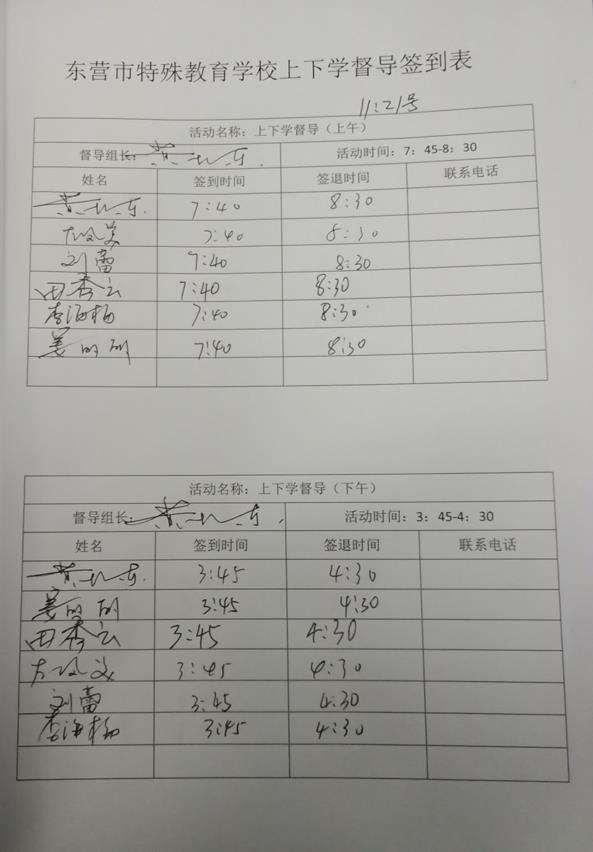 东营市特殊教育学校上下学督导签到表
11:21号
活动名称：上下学督导（上午）
督导组长： 活动时间：7：45-8：30
姓名 签到时间 签退时间 联系电话
7:40 8:30
7:40 8:30
刘蕾 7:40 8:30
田秀云 7:40 8:30
李海杨 7:40 8:30
7:40 8:30
活动名称：上下学督导（下午）
督导组长： 活动时间：3：45-4：30
姓名 签到时间 签退时间 联系电话
3:45 4:30
3:45 4:30
田秀云 3:45 4:30
3:45 4:30
刘蕾 3:45 4:30
李海杨 3:45 4:30